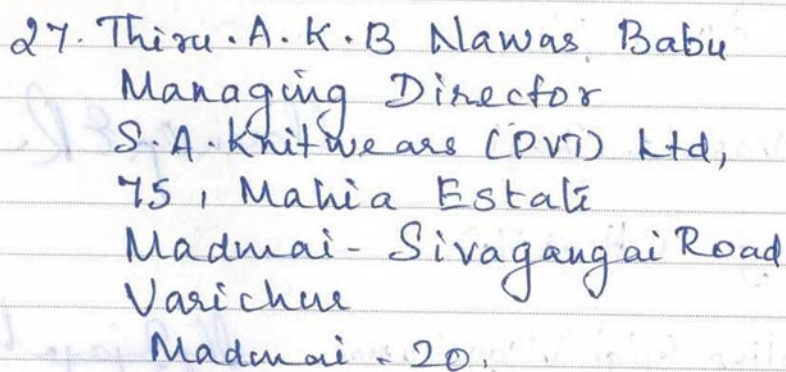 27. Thiru. A. K. B Nawas Babu
Managing Director
S. A. Knitwears (PVT) Ltd,
75, Mahia Estate
Madurai - Sivagangai Road
Varichur
Madurai - 20.